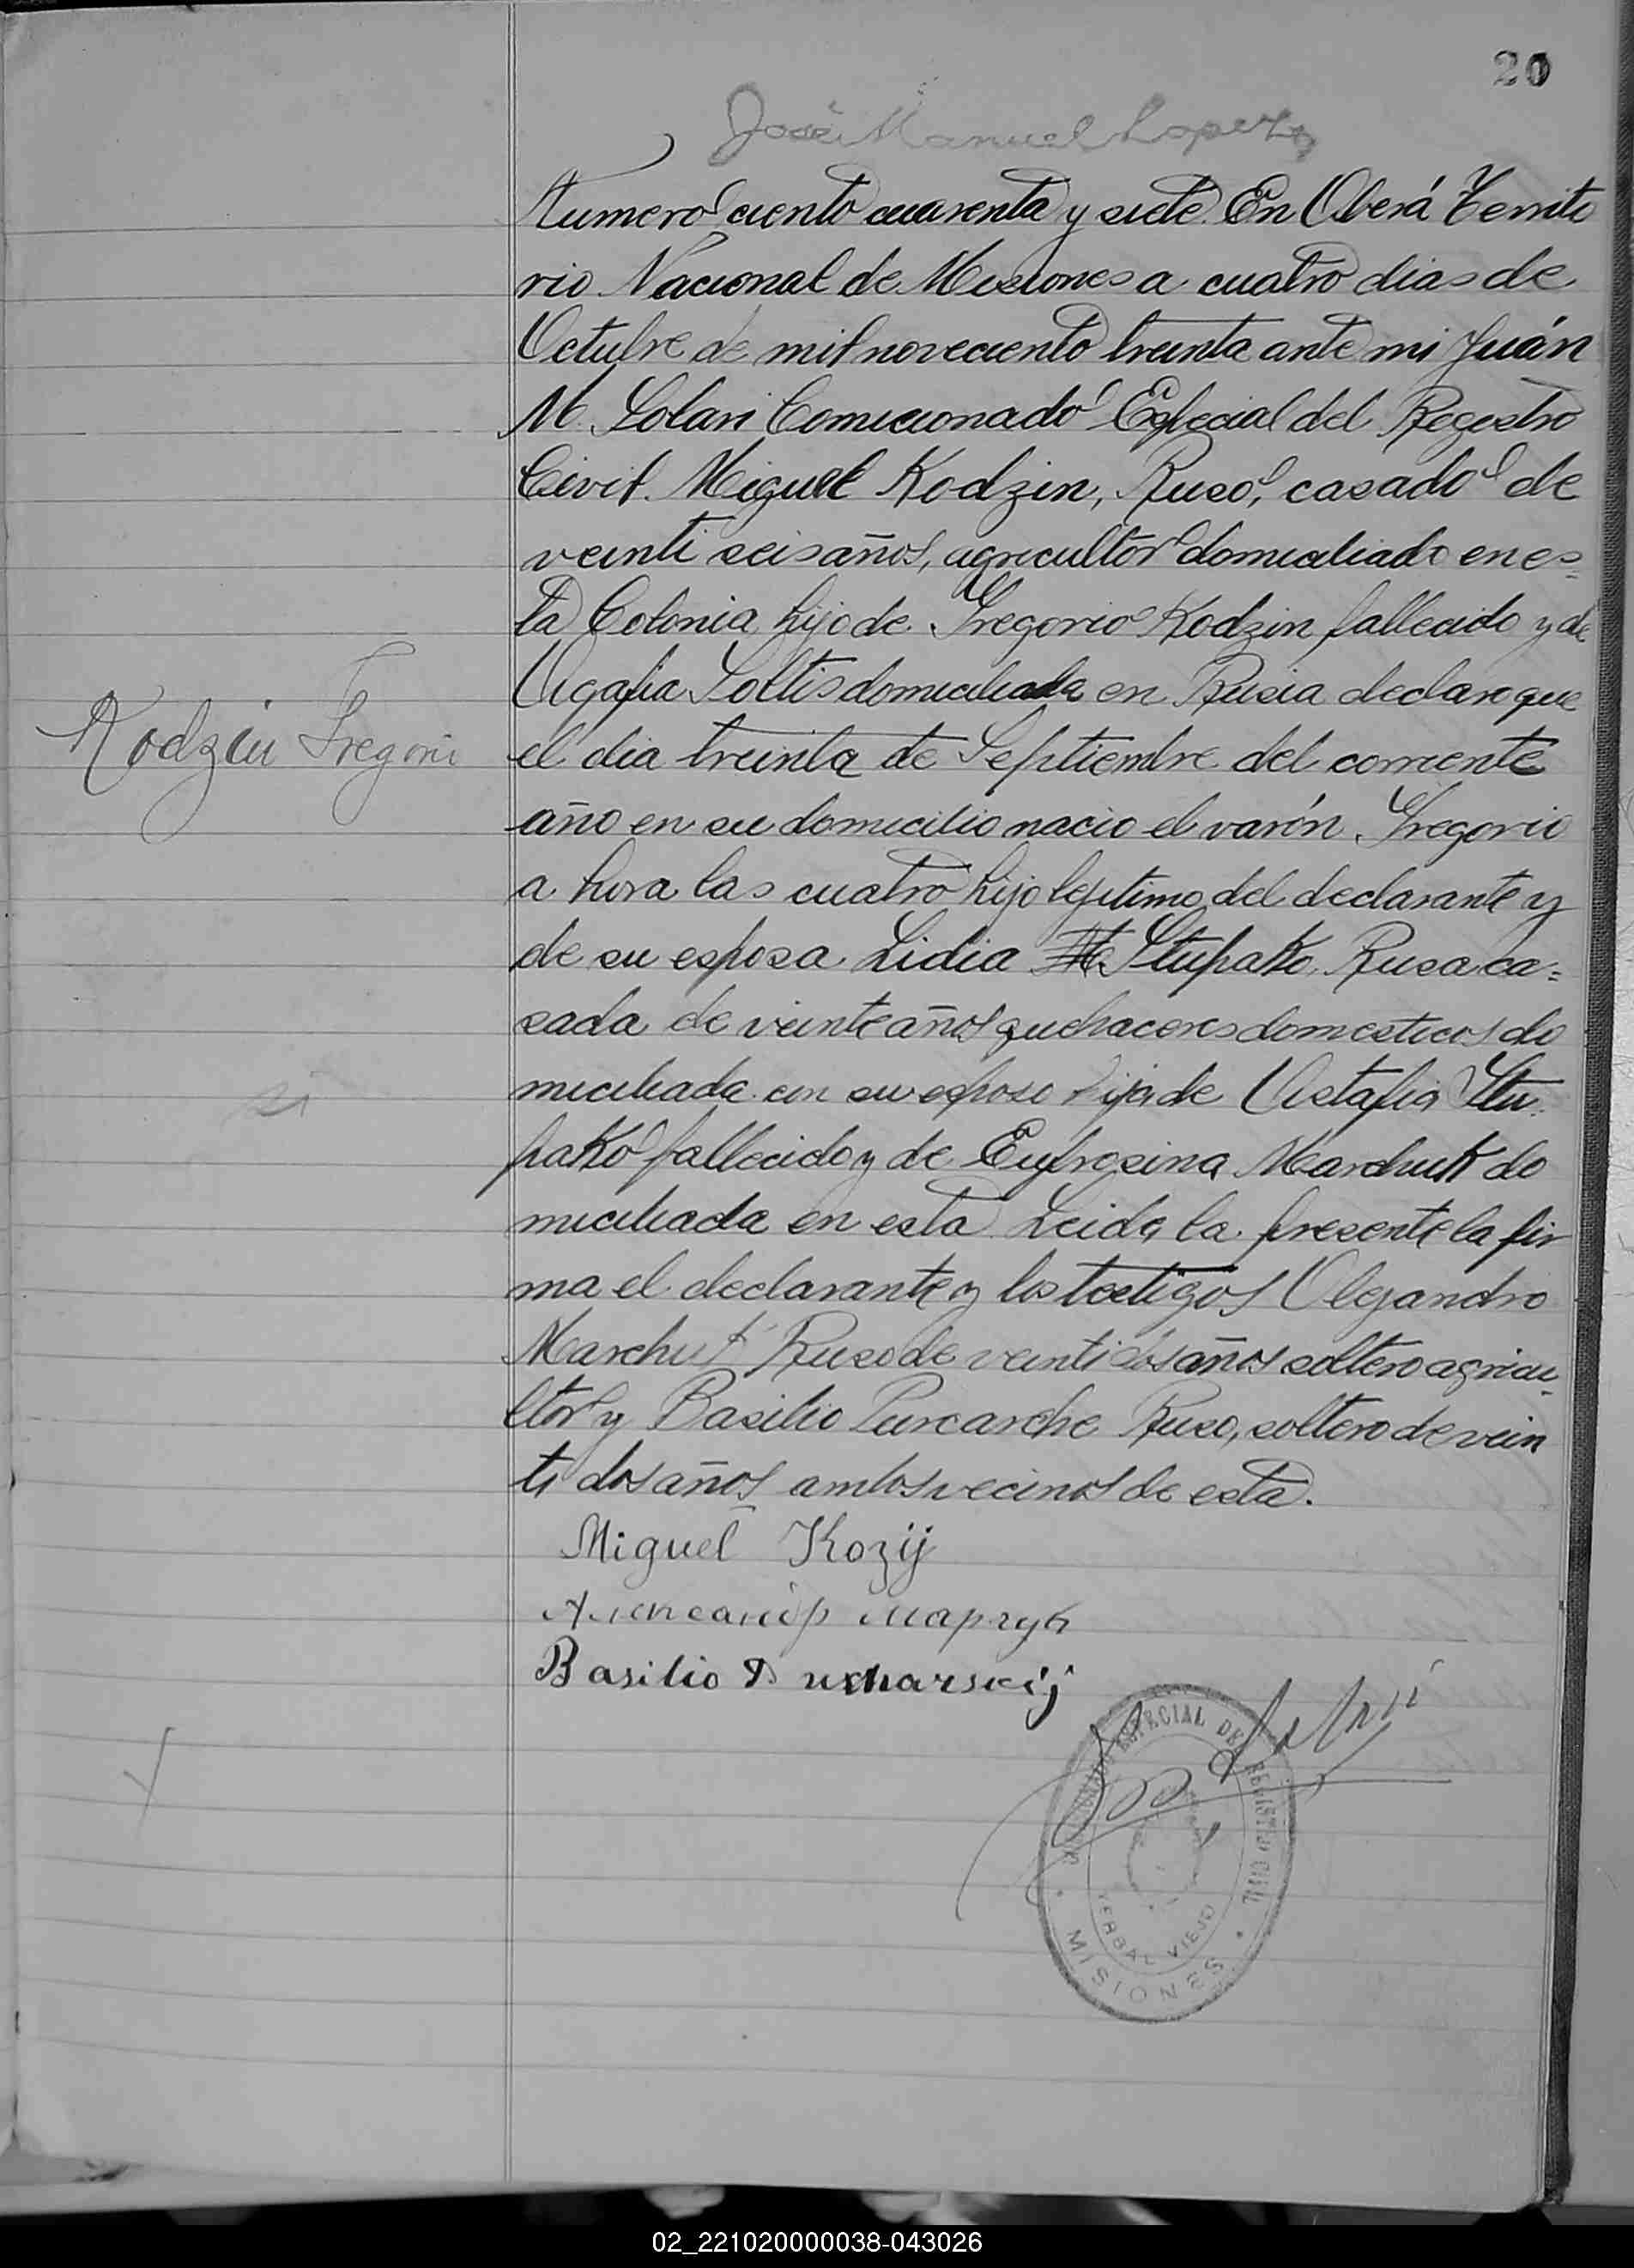 20
José Manuel Lopez
Numero ciento cuarenta y siete. En Oberá Territo
rio Nacional de Misiones a cuatro dias de
Octubre de mil noveciento treinta ante mi Juán
M. Solari Comicionado Especial del Registro
Civil. Miguel Kodzin, Ruso, casado de
veinti seis años, agricultor domiciliado en es=
ta Colonia hijo de Gregorio Kodzin fallecido y de
Agafia Soltis domiciliada en Rusia declaro que
Kodzin Gregorio
el dia treinta de Septiembre del corriente
año en su domicilio nacio el varón Gregorio
a hora las cuatro hijo lejitimo del declarante y
de su esposa Lidia Stupako Rusa ca=
sada de veinte años quehaceres domesticos do
miciliada con su esposo hija de Astafia Stu
pako fallecido y de Eufrosina Marchuk do
miciliada en esta Leida la presente la fir
ma el declarante y los testigos Alejandro
Marchuk Ruso de veintidos años soltero agricu
ltor y Basilio Purcarche Ruso, soltero de vein
ti dos años ambos vecinos de esta.
Miguel Kozij
Александр Марчук
Basilio
ESPECIAL DE REGISTRO CIVIL
YERBAL VIEJO
MISIONES
02_221020000038-043026